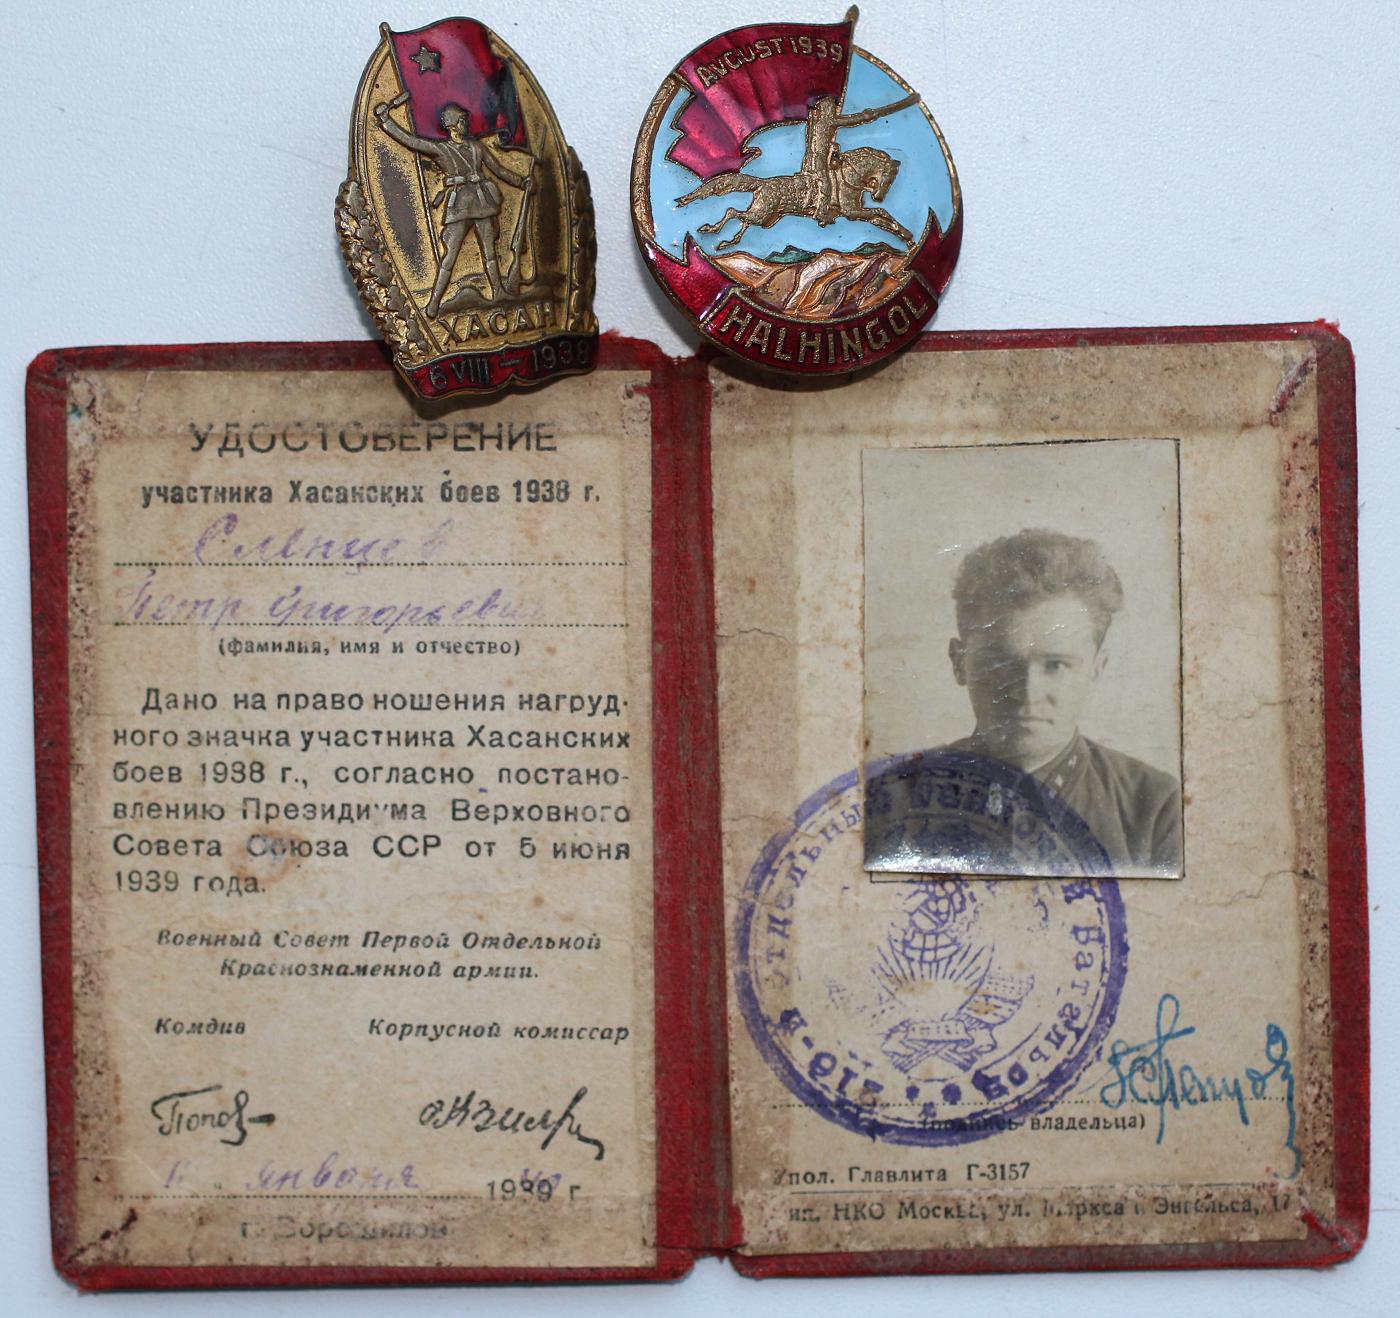 AVGUST 1939
HALHINGOL
ХАСАН
6 VIII – 1938
УДОСТОВЕРЕНИЕ
участника Хасанских боев 1938 г.
Слепцов
Петр Григорьевич
(фамилия, имя и отчество)
Дано на право ношения нагруд-
ного значка участника Хасанских
боев 1938 г., согласно постано-
влению Президиума Верховного
Совета Союза ССР от 5 июня
1939 года.
Военный Совет Первой Отдельной
Краснознаменной армии.
Комдив Корпусной комиссар
Попов
января 1940 г.
г. Ворошилов
Отдельный Батальон
(подпись владельца)
Упол. Главлита Г-3157
Тип. НКО Москва, ул. Маркса и Энгельса, 17